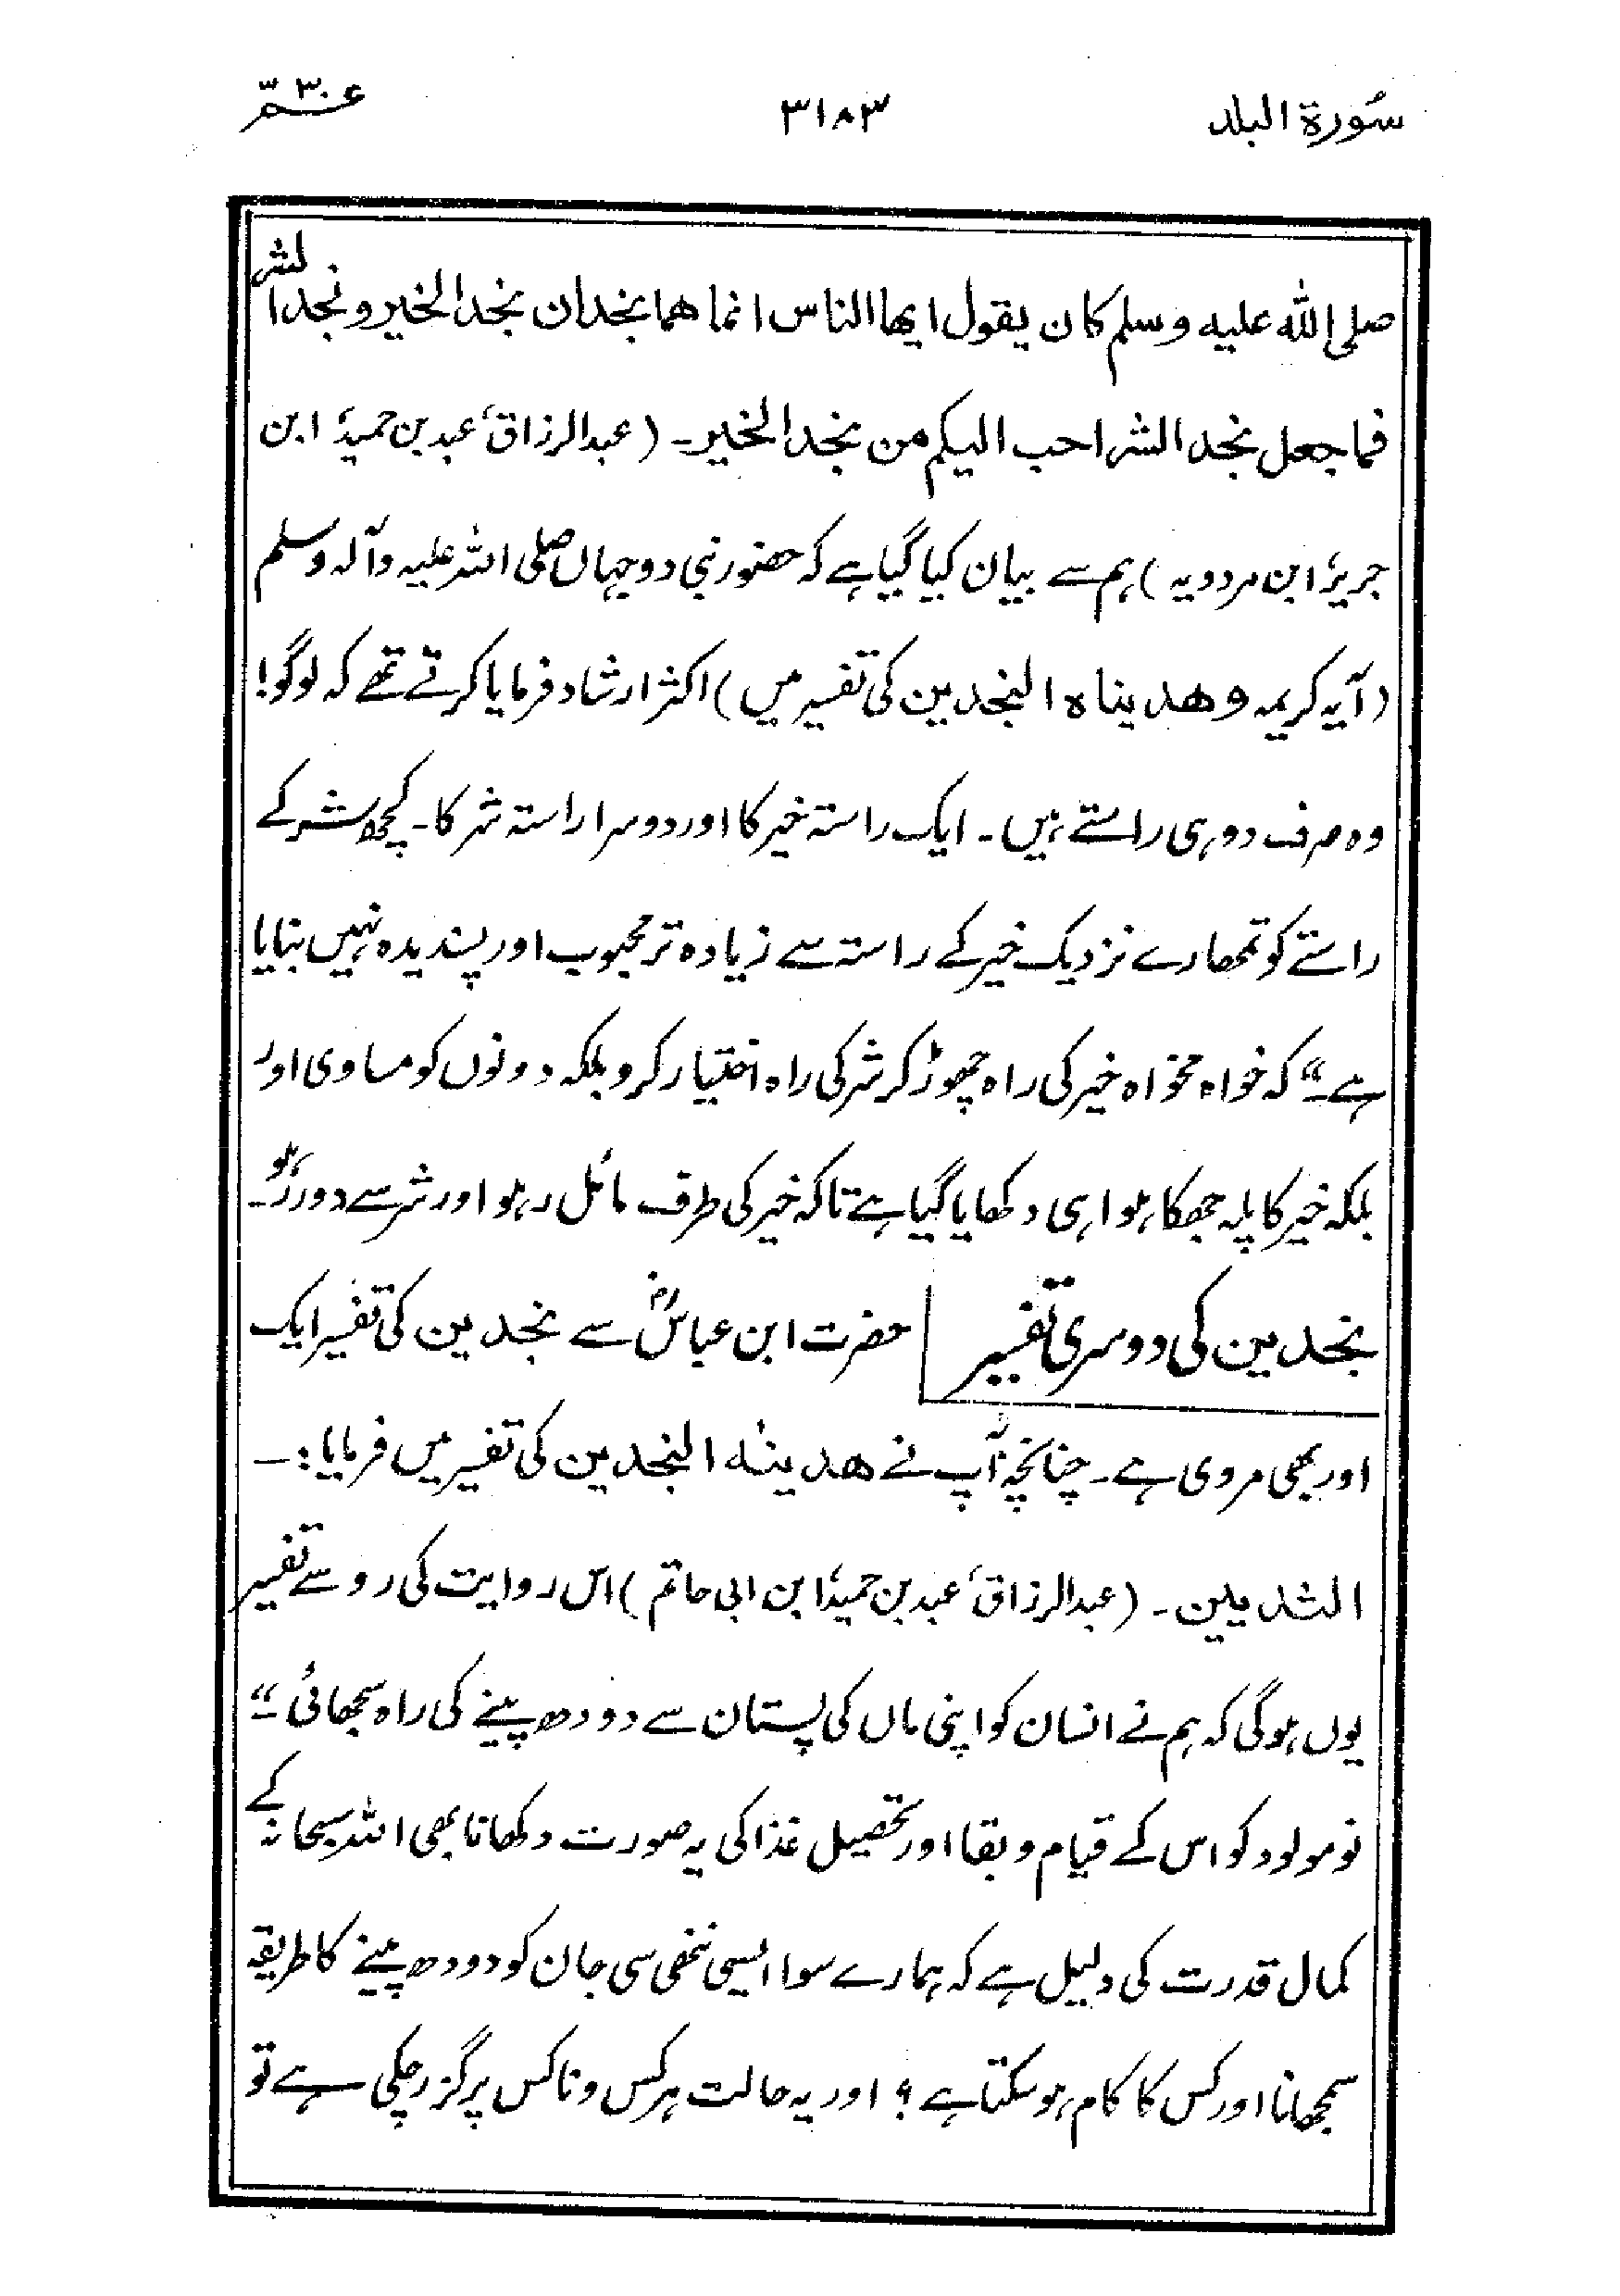 سُورة البلد ۳۱۸۳ عمّ ۳۰
صلی اللّٰہ علیہ وسلم کان یقول ایھا الناس انما ھما نجدان نجد الخیر ونجد الشر
فما جعل نجد الشر احب الیکم من نجد الخیر۔ (عبدالرزاق، عبد بن حمید، ابن
جریر، ابن مردویہ) ہم سے بیان کیا گیا ہے کہ حضور نبی دو جہاں صلی اللہ علیہ وآلہ وسلم
(آیہ کریمہ وھدیناہ النجدین کی تفسیر میں) اکثر ارشاد فرمایا کرتے تھے کہ لوگو!
وہ صرف دو ہی راستے ہیں۔ ایک راستہ خیر کا اور دوسرا راستہ شر کا۔ کچھ شر کے
راستے کو تمھارے نزدیک خیر کے راستہ سے زیادہ تر محبوب اور پسندیدہ نہیں بنایا
ہے۔“ کہ خواہ مخواہ خیر کی راہ چھوڑ کر شر کی راہ اختیار کرو بلکہ دونوں کو مساوی اور
بلکہ خیر کا پلہ جھکا ہوا ہی دکھایا گیا ہے تاکہ خیر کی طرف مائل رہو اور شر سے دور رہو۔
نجدین کی دوسری تفسیر حضرت ابن عباسؓ سے نجدین کی تفسیر ایک
اور بھی مروی ہے۔ چنانچہ آپ نے ھدینٰہ النجدین کی تفسیر میں فرمایا:۔
الثدیین۔ (عبدالرزاق، عبد بن حمید، ابن ابی حاتم) اس روایت کی رو سے تفسیر
یوں ہوگی کہ ہم نے انسان کو اپنی ماں کی پستان سے دودھ پینے کی راہ سجھائی۔“
نومولود کو اس کے قیام و بقا اور تحصیل غذا کی یہ صورت دکھانا بھی اللہ سبحانہ کے
کمال قدرت کی دلیل ہے کہ ہمارے سوا ایسی ننھی سی جان کو دودھ پینے کا طریقہ
سمجھانا اور کس کا کام ہو سکتا ہے؟ اور یہ حالت ہر کس و ناکس پر گزر چکی ہے تو